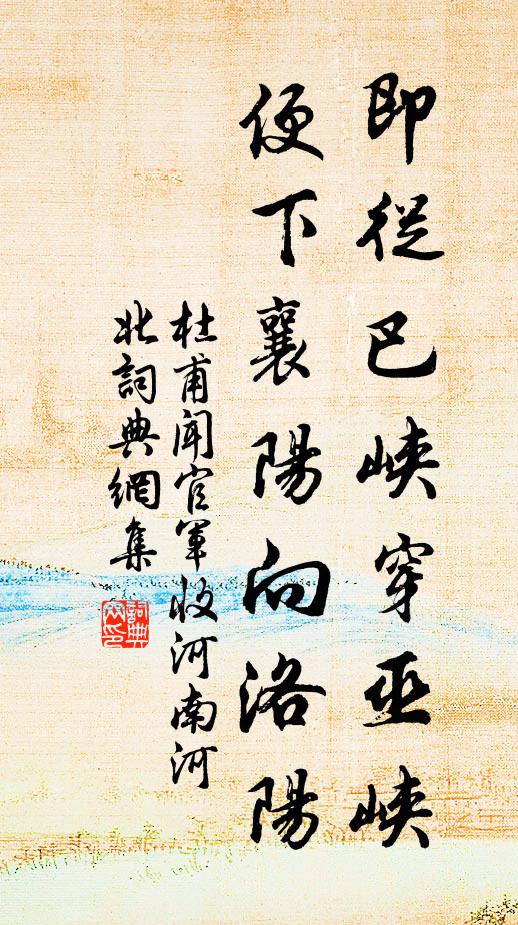 即從巴峽穿巫峽
便下襄陽向洛陽
杜甫聞官軍收河南河
北詞典網集
詞典